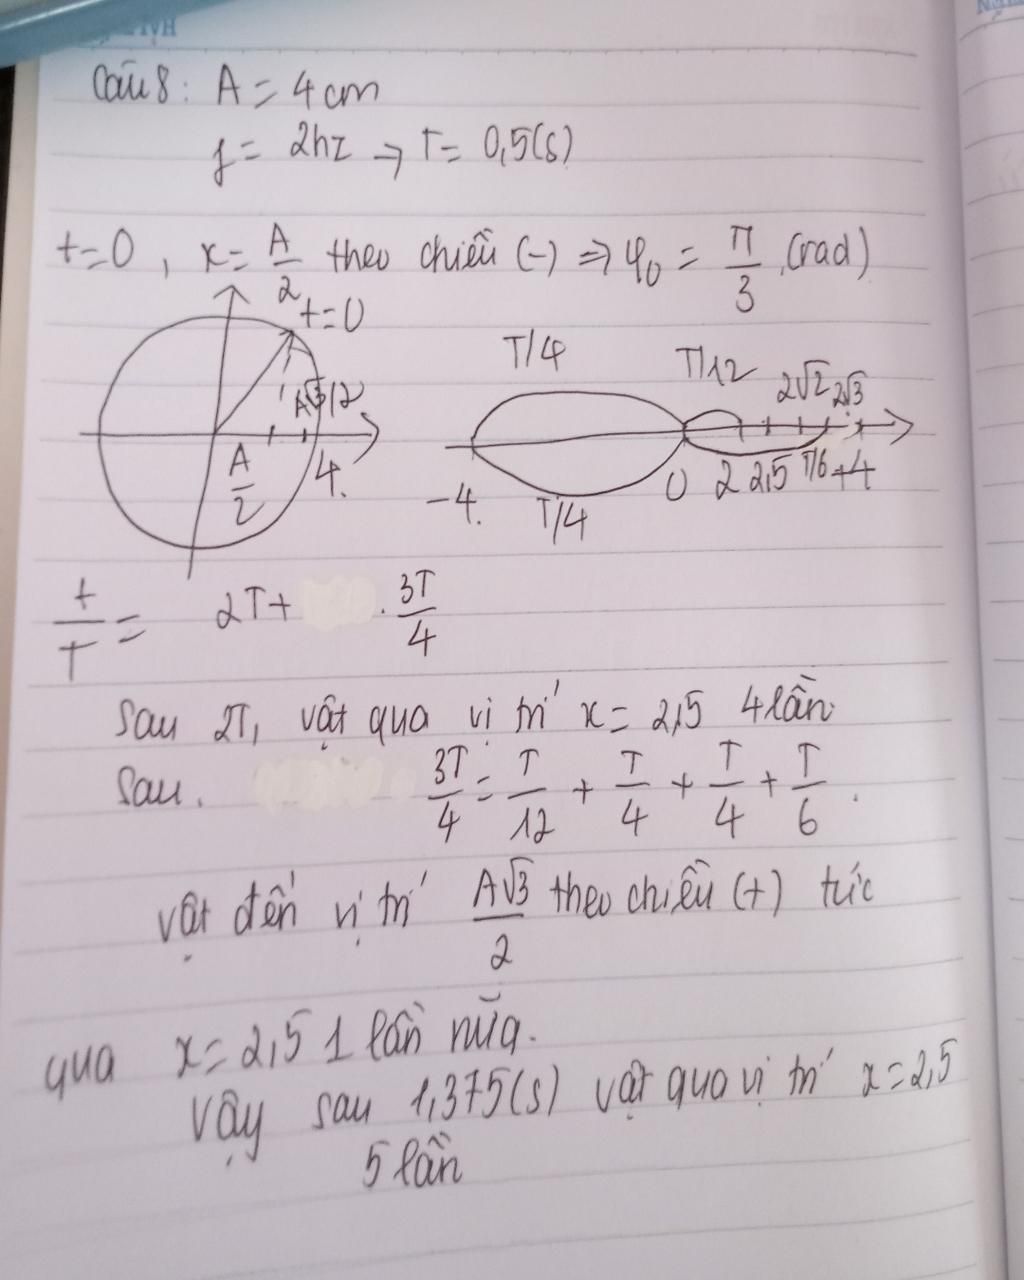 Câu 8: A = 4 cm
f = 2hz → T = 0,5(s)
t=0, x = A/2 theo chiều (-) ⇒ φ₀ = π/3 (rad)
t=0
A√3/2
A/2
4.
T/4
T/12
2√2 2√3
-4.
T/4
0 2 2,5 T/6 +4
t/T = 2T + . 3T/4
Sau 2T, vật qua vị trí x = 2,5 4 lần
Sau. 3T/4 = T/12 + T/4 + T/4 + T/6 .
vật đến vị trí A√3/2 theo chiều (+) tức
qua x = 2,5 1 lần nữa.
Vậy sau 1,375(s) vật qua vị trí x = 2,5
5 lần